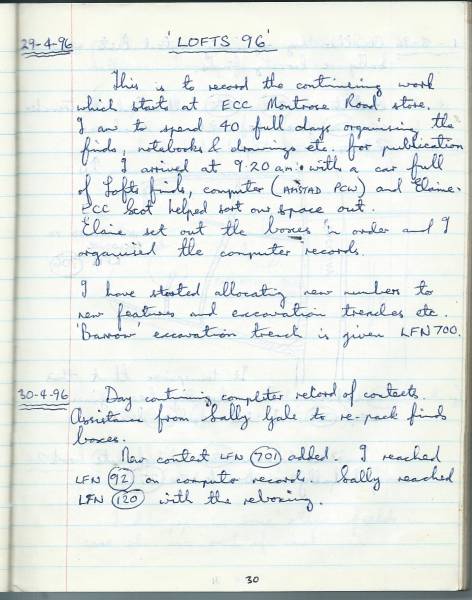 29-4-96 'LOFTS 96'
This is to record the continuing work
which starts at ECC Montrose Road store.
I am to spend 40 full days organising the
finds, notebooks & drawings etc. for publication
I arrived at 9.20 am. with a car full
of Lofts finds, computer (AMSTAD PCW) and Elaine.
ECC Scot helped sort our space out.
Elaine set out the boxes in order and I
organised the computer records.
I have started allocating new numbers to
new features and excavation trenches etc.
'Barrow' excavation trench is given LFN 700.
30-4-96 Day continuing computer record of contexts.
Assistance from Sally Gale to re-pack finds
boxes.
New context LFN 701 added. I reached
LFN 92 on computer records. Sally reached
LFN 120 with the reboxing.
30